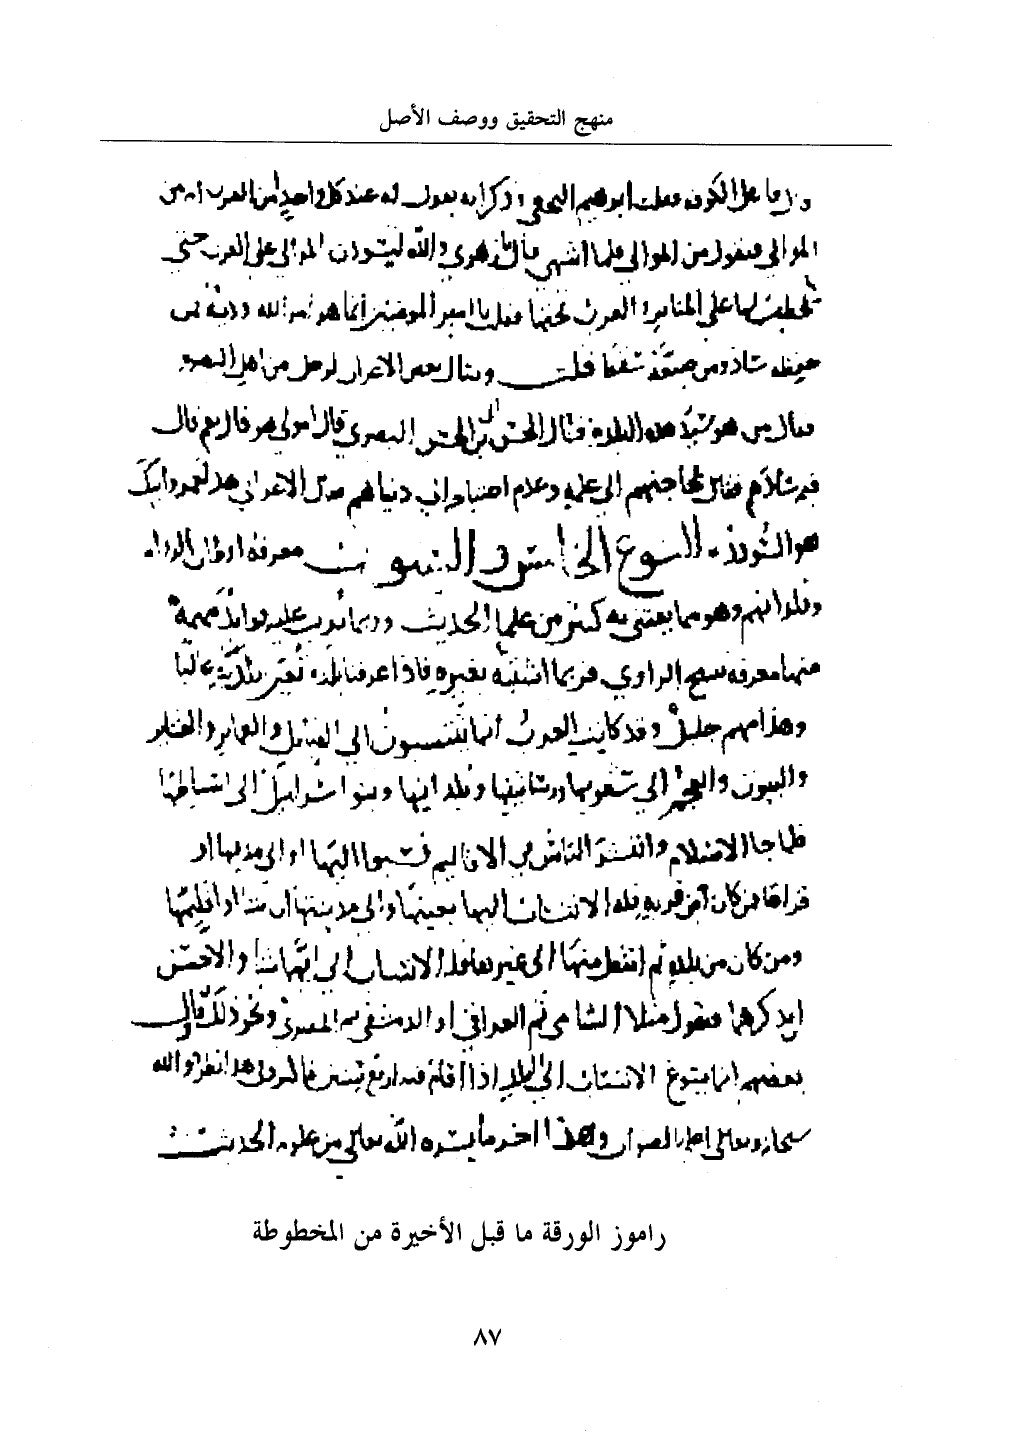 منهج التحقيق ووصف الأصل
على الكوفة فقلت ابرهيم النخعي وذكر انه يقول له عند كل واحد امن العرب ام من
الموالي فيقول من الموالي فلما انتهى قال يا زهري والله ليسودن الموالي على العرب حتى
يخطب لها على المنابر والعرب تحتها فقلت يا امير المومنين انما هو امر الله ودينه فمن
حفظه ساد ومن ضيعه سقط قلت وسال بعض الاعراب لرجل من اهل البصره
فقال من هو سيد هذه البلدة فقال الحسن بن ابي الحسن البصري قال امولى هو قال نعم قال
فبم سادهم فقال بحاجتهم الى علمه وعدم احتياجه الى دنياهم فقال الاعرابي هذا لعمر وابيك
هو السودد. النوع الخامس والستون معرفة اوطان الرواه
وبلدانهم وهو مما يعتني به كثير من علما الحديث وربما ترتب عليه فوائد مهمة
منها معرفة شيخ الراوي فربما اشتبه بغيره فاذا عرفنا بلده تعين بلديه غالبا
وهذا مهم جليل وقد كانت العرب انما ينتسبون الى القبائل والعماير والعشاير
والبيوت والعجم الى شعوبها ورساتيقها وبلدانها وبنوا اسرايل الى اسباطها
فلما جا الاسلام وانتشر الناس في الاقاليم نسبوا اليها او الى مدنها او
قراها فمن كان من قريه فله الانتساب اليها بعينها والى مدينتها ان شا او اقليمها
ومن كان من بلده ثم انتقل منها الى غيرها فله الانتساب الى ايهما شا والاحسن
ان يذكرهما فيقول مثلا الشامي ثم العراقي او الدمشقي ثم المصري ونحو ذلك وقال
بعضهم انما يسوغ الانتساب الى البلد اذا اقام فيه اربع سنين فاكثر وفي هذا نظر والله
سبحانه وتعالى اعلم بالصواب وهذا اخر ما يسره الله تعالى من علوم الحديث
راموز الورقة ما قبل الأخيرة من المخطوطة
٨٧